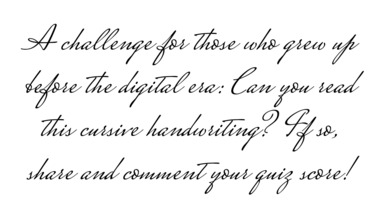 A challenge for those who grew up
before the digital era: Can you read
this cursive handwriting? If so,
share and comment your quiz score!